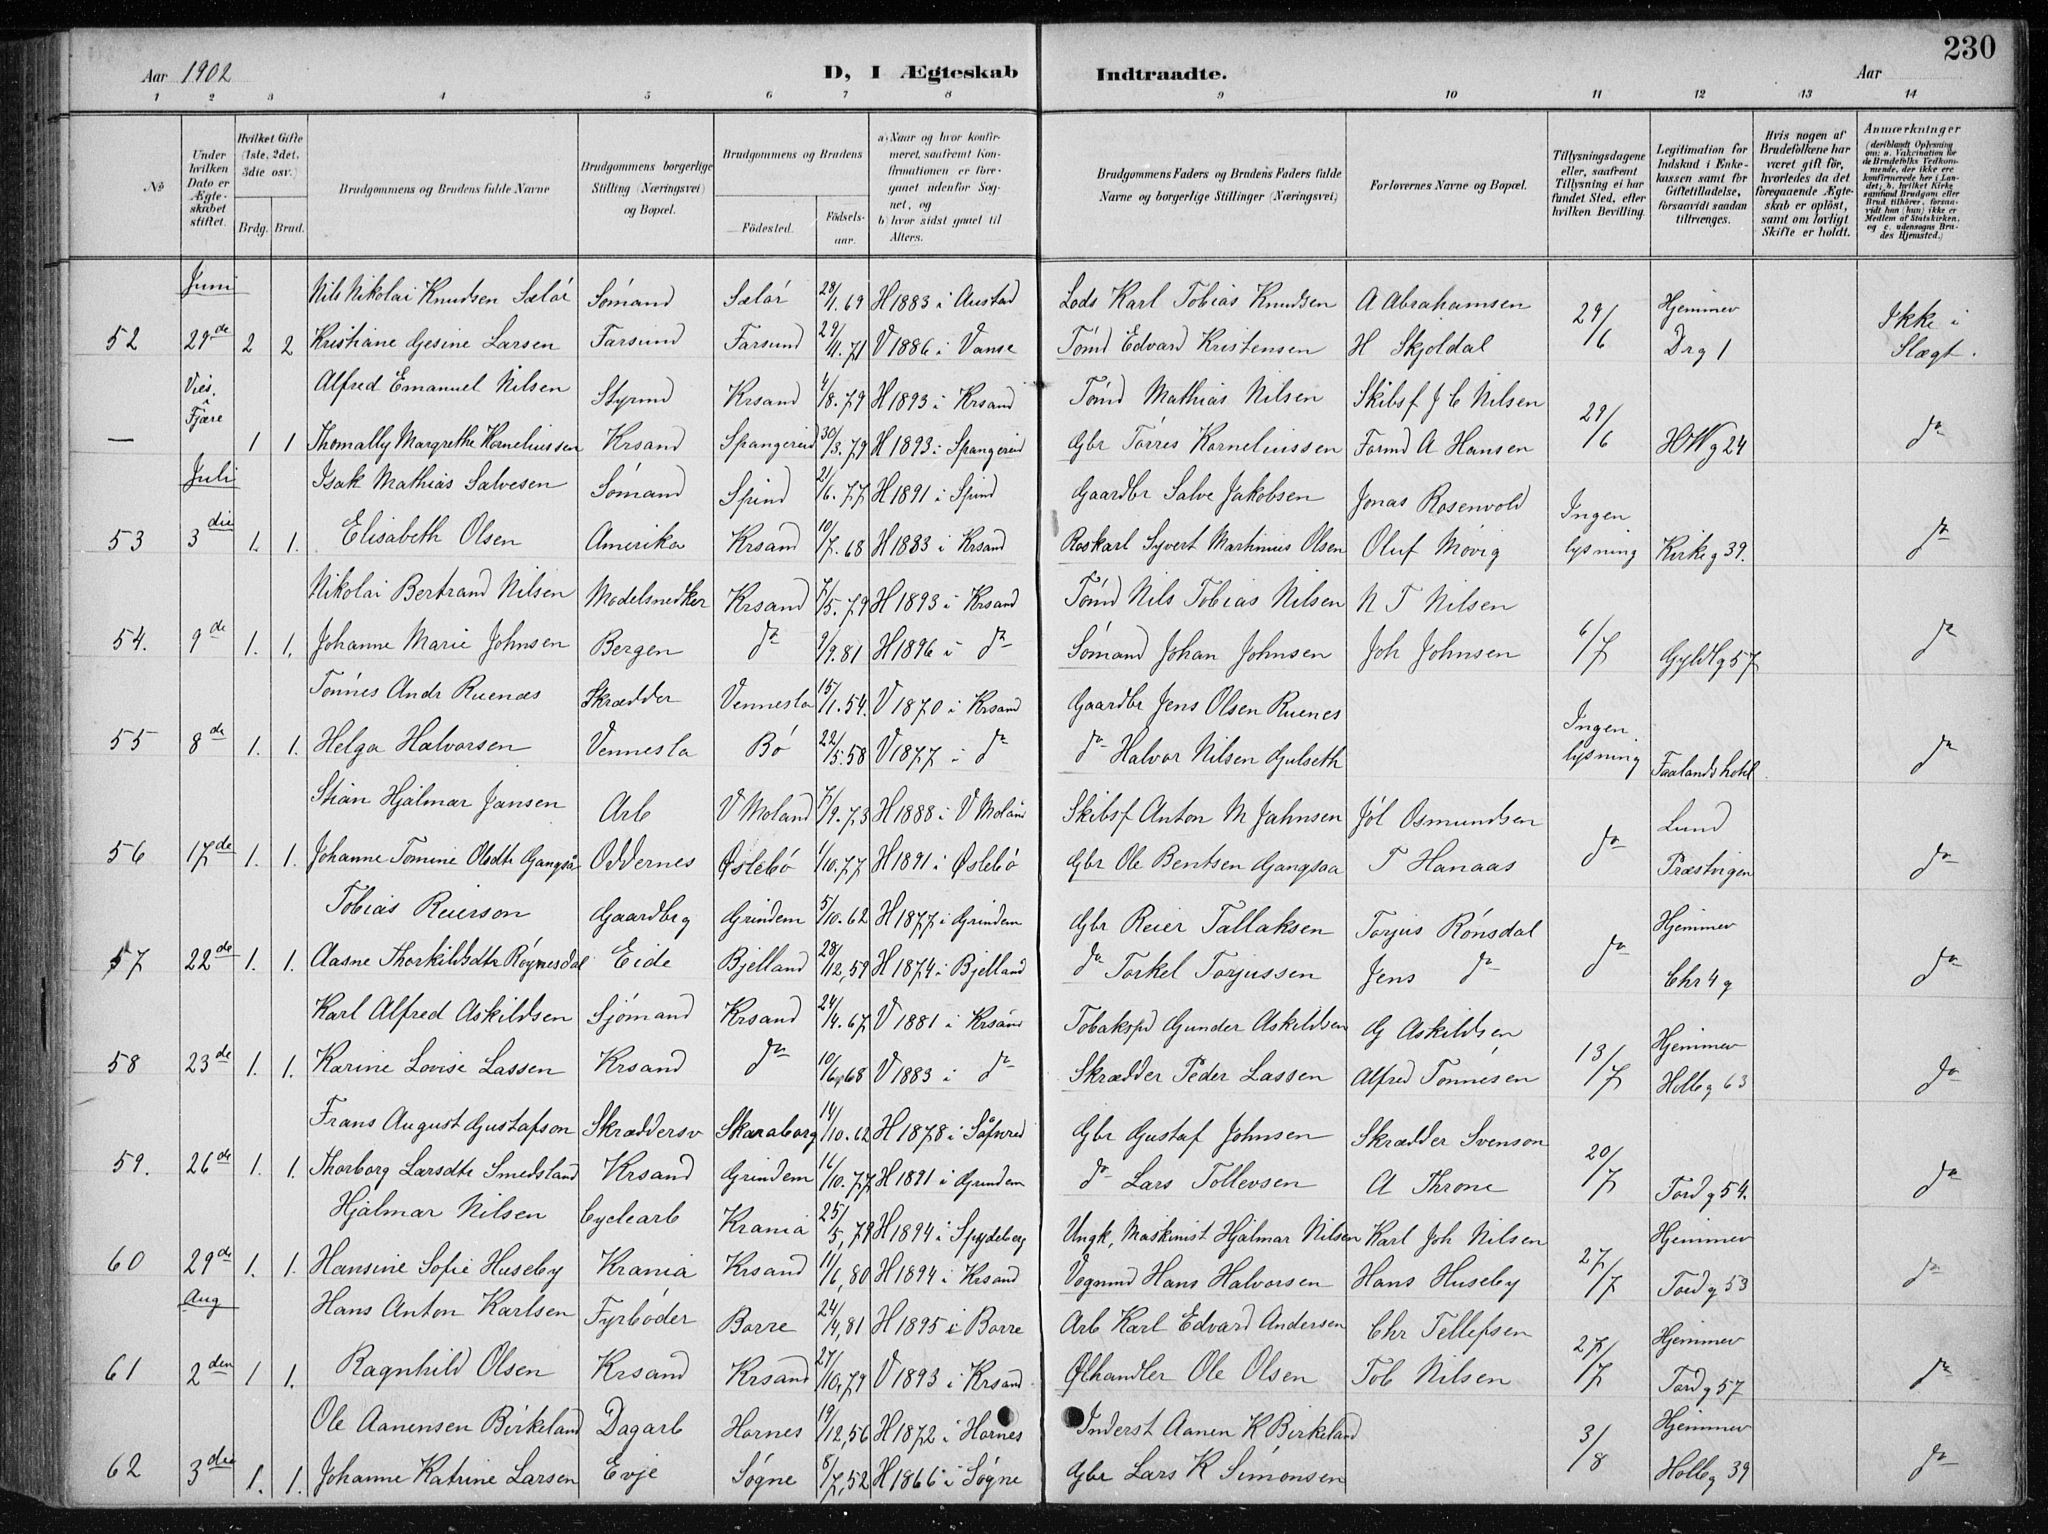 230
Aar 1902 D, I Ægteskab Indtraadte. Aar
1 2 3 4 5 6 7 8 9 10 11 12 13 14
No
Under hvilken Dato er Ægteskabet stiftet.
Hvilket Gifte (1ste, 2det, 3die osv.)
Brdg. Brud.
Brudgommens og Brudens fulde Navne
Brudgommens borgerlige Stilling (Næringsvei) og Bopæl.
Brudgommens og Brudens
Fødested. Fødselsaar.
a) Naar og hvor konfirmeret, saafremt Konfirmationen er foregaaet udenfor Sognet, og
b) hvor sidst gaaet til Alters.
Brudgommens Faders og Brudens Faders fulde Navne og borgerlige Stillinger (Næringsvei)
Forlovernes Navne og Bopæl.
Tillysningsdagene eller, saafremt Tillysning ei har fundet Sted, efter hvilken Bevilling.
Legitimation for Indskud i Enkekassen samt for Giftetilladelse, forsaavidt saadan tiltrænges.
Hvis nogen af Brudefolkene har været gift før, hvorledes da det foregaaende Ægteskab er opløst, samt om lovligt Skifte er holdt.
Anmærkninger (deriblandt Oplysning om: a. Vakcination for de Brudefolks Vedkommende, der ikke ere konfirmerede her i Landet; b. hvilket Kirkesamfund Brudgom eller Brud tilhører, forsaavidt han (hun) ikke er Medlem af Statskirken, og c. udensogns Brudes Hjemsted.)
Juni Nils Nikolai Knudsen Sælør Sømand Sælør 28/1.69 H 1883 i Austad Lods Karl Tobias Knudsen A Abrahamsen 29/6 Hjemmev Ikke i
52 29de 2 2 Kristiane Gesine Larsen Farsund Farsund 29/11.71 V 1886 i Vanse Tømd Edvard Kristensen H Skjoldal Drg 1 Slægt.
Vies i Fjære Alfred Emanuel Nilsen Styrmd Krsand 4/8.79 H 1893 i Krsand Tømd Mathias Nilsen Skibsf J C Nilsen 29/6
— 1 1 Thomally Margrethe Korneliussen Krsand Spangereid 30/3.79 H 1893 i Spangereid Gbr Torres Korneliussen Formd A Hansen HWg 24 do
Juli Isak Mathias Salvesen Sømand Spind 21/6.77 H 1891 i Spind Gaardbr Salve Jakobsen Jonas Rosenvold Ingen
53 3die 1. 1. Elisabeth Olsen Amerika Krsand 10/7.68 H 1883 i Krsand Roskarl Syvert Martinius Olsen Oluf Møvig lysning Kirkeg 39. do
Nikolai Bertrand Nilsen Modelsnedker Krsand 7/5.79 H 1893 i Krsand Tømd Nils Tobias Nilsen N T Nilsen
54. 9de 1. 1. Johanne Marie Johnsen Bergen do 9/9.81 H 1896 i do Sømand Johan Johnsen Joh Johnsen 6/7 Gyldlg 57 do
Tønnes Andr Ruenæs Skrædder Vennesla 15/1.54. V 1870 i Krsand Gaardbr Jens Olsen Ruenes Ingen
55 8de 1. 1. Helga Halvorsen Vennesla Bø 22/5.58 V 1877 i do do Halvor Nilsen Gulseth lysning Faalands hotel. do
Stian Hjalmar Jansen Arb V Moland 7/9.73 H 1888 i V Moland Skibsf Anton M Jahnsen Jøl Osmundsen Lund
56 17de 1. 1. Johanne Tomine Olsdtr Gangsaa Oddernes Øslebø 1/10.77 H 1891 i Øslebø Gbr Ole Bentsen Gangsaa T Hanaas do Præstvigen do
Tobias Reierson Gaardbrg Grindem 5/10.62 H 1877 i Grindem Gbr Reier Tallaksen Torjus Rønsdal Hjemmev
57 22de 1. 1. Aasne Thorkildsdtr Røynesdal Eide Bjelland 28/12,59 H 1874 i Bjelland do Torkel Torjussen Jens do do Chr 4 g do
Karl Alfred Askildsen Sjømand Krsand 24/4.67 V 1881 i Krsand Tobakspd Gunder Askildsen G Askildsen Hjemmev
58 23de 1. 1. Karine Lovise Lassen Krsand do 10/6.68 V 1883 i do Skrædder Peder Lassen Alfred Tønnesen 13/7 Holbg 63 do
Frans August Gustafson Skræddersv Skaraborg 14/10.62 H 1878 i Gbr Gustaf Johnsen Skrædder Svenson
59. 26de 1. 1. Thorborg Larsdtr Smedsland Krsand Grindem 16/10.77 H 1891 i Grindem do Lars Tollevsen A Throne 20/7 Tordg 54. do
Hjalmar Nilsen Cyclearb Krania 25/5,79 H 1894 i Spydeberg Ungk, Maskinist Hjalmar Nilsen Karl Joh Nilsen Hjemmev
60 29de 1. 1. Hansine Sofie Huseby Krania Krsand 14/6,80 H 1894 i Krsand Vognmd Hans Halvorsen Hans Huseby 27/7 Tordg 53 do
Aug Hans Anton Karlsen Fyrbøder Borre 24/4,81 H 1895 i Borre Arb Karl Edvard Andersen Chr Tellefsen Hjemmev
61 2den 1 1. Ragnhild Olsen Krsand Krsand 27/10,79 V 1893 i Krsand Ølhandler Ole Olsen Tob Nilsen 27/7 Tordg 57 do
Ole Aanensen Birkeland Dagarb Hornes 19/12,56 H 1872 i Hornes Inderst Aanen K Birkeland Hjemmev
62 3die 1. 1. Johanne Katrine Larsen Evje Søgne 8/7,52 H 1866 i Søgne Gbr Lars K Simonsen 3/8 Holbg 39 do